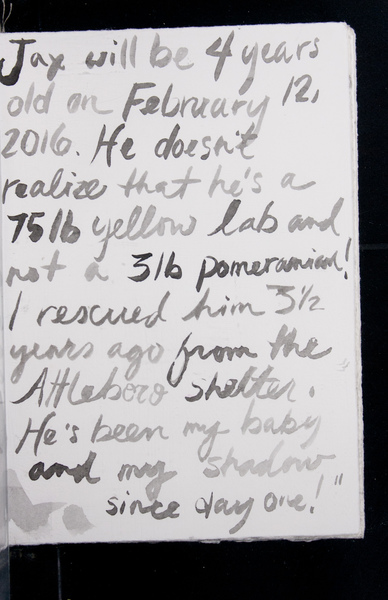 Jax will be 4 years
old on February 12,
2016. He doesn't
realize that he's a
75lb yellow lab and
not a 3lb pomeranian!
I rescued him 3½
years ago from the
Attleboro shelter.
He's been my baby
and my shadow
since day one!"